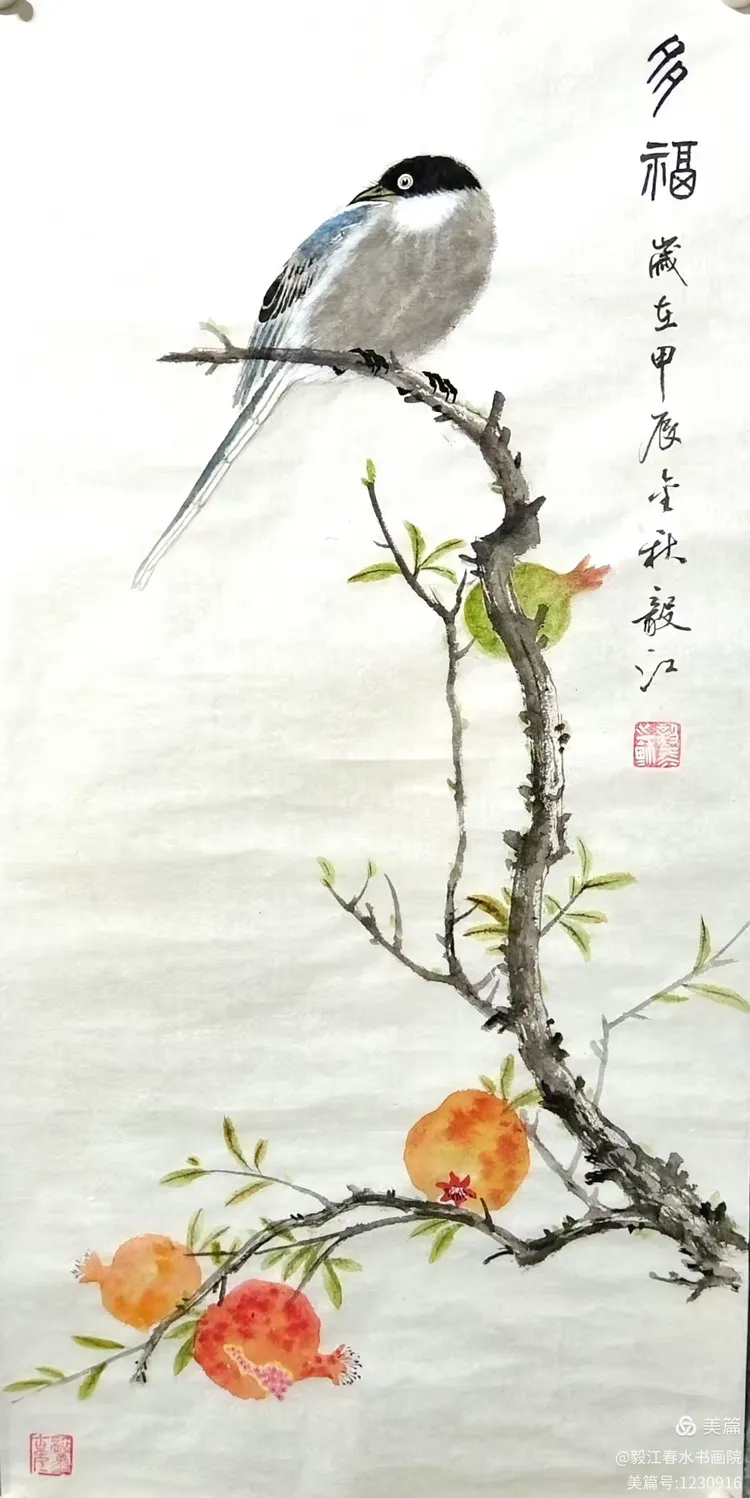 多福
歲在甲辰金秋毅江
美篇
@毅江春水书画院
美篇号:1230916